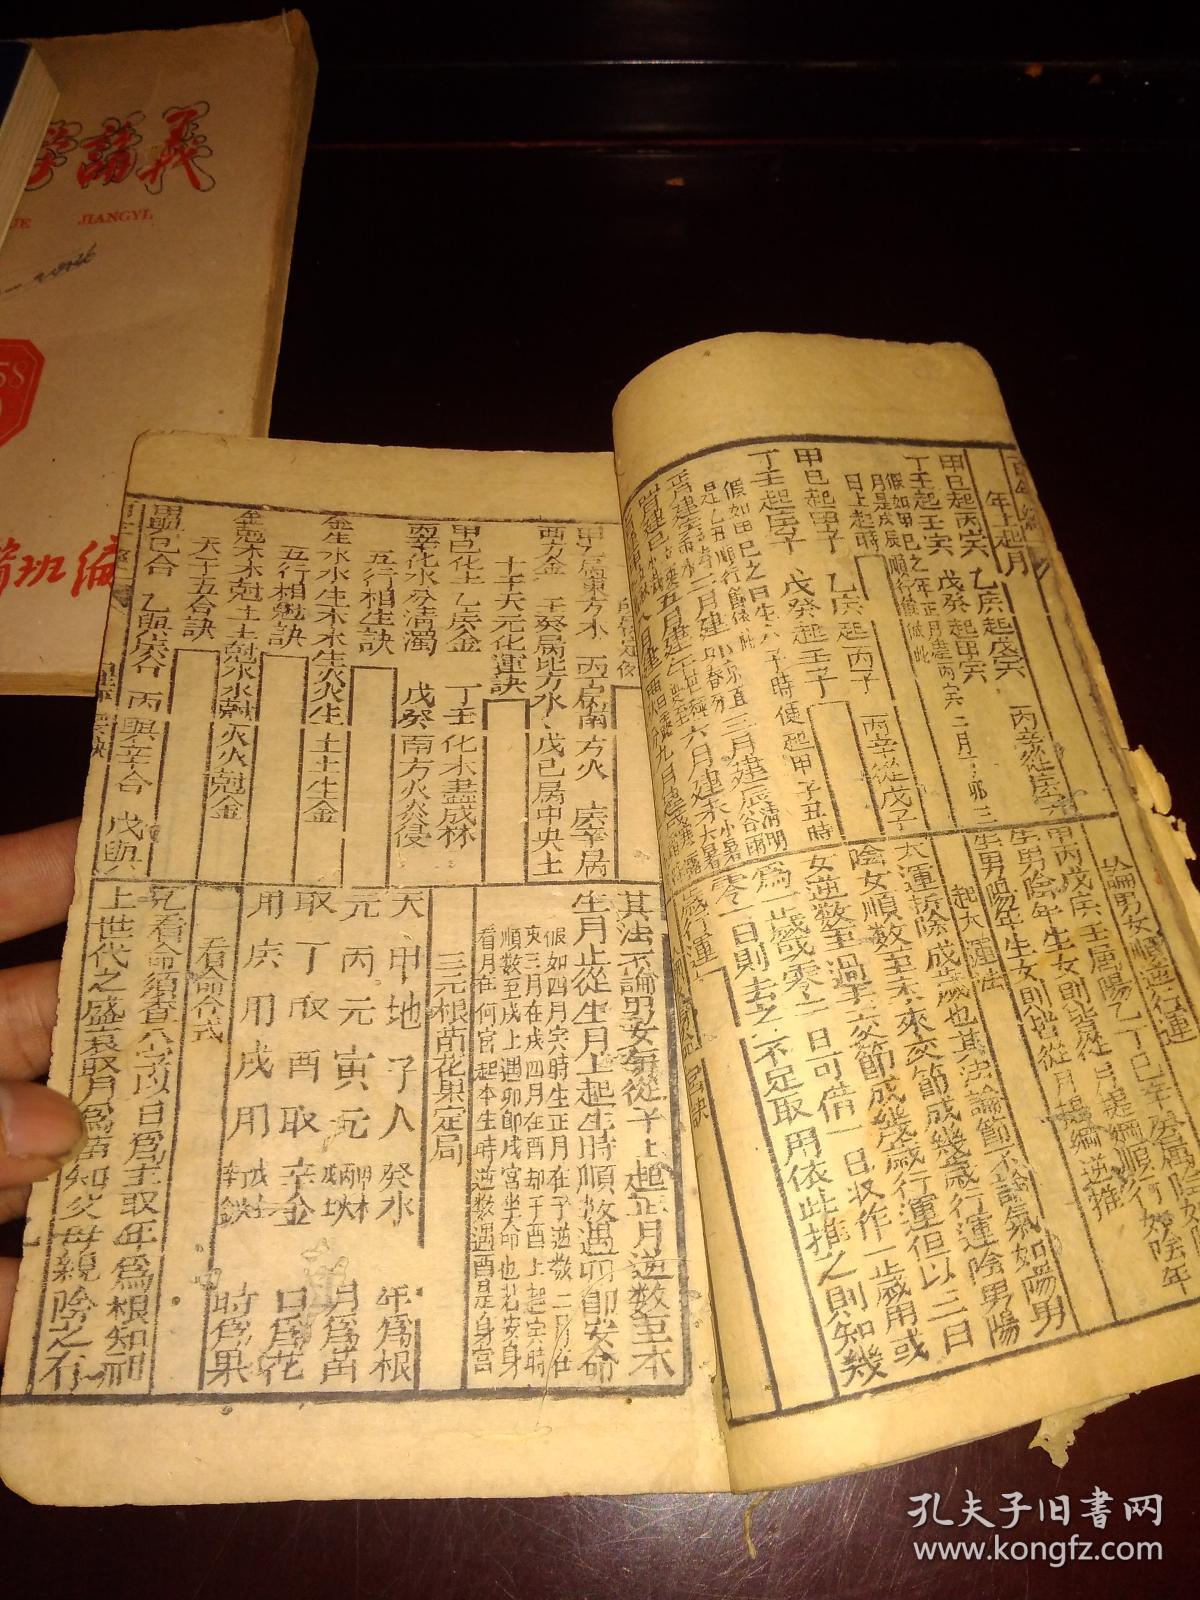 學講義
JIANGYI
年上起月
甲己起丙寅 乙庚起戊寅 丙辛從庚寅
丁壬起壬寅 戊癸起甲寅
假如甲己之年正月建丙寅二月丁卯三
月是戊辰順行餘倣此
日上起時
甲己起甲子 乙庚起丙子 丙辛從戊子
丁壬起庚子 戊癸起壬子
假如甲己之日生人子時便起甲子丑時
是乙丑順行餘倣此
論男女順逆行運
甲丙戊庚壬屬陽乙丁己辛癸屬陰如陽年
生男陰年生女則皆從月提綱順行如陰年
生男陽年生女則皆從月提綱逆推
起大運法
大運折除成歲也其法論節不論氣如陽男
陰女順數至未來交節成幾歲行運陰男陽
女逆數至過去交節成幾歲行運但以三日
為一歲或零一日可借一日收作一歲用或
零一日則去之不足取用依此推之則知幾
歲行運
甲乙屬東方木 丙丁屬南方火 庚辛居
西方金 壬癸居北方水 戊己居中央土
十干天元化運訣
甲己化土乙庚金 丁壬化木盡成林
丙辛化水分清濁 戊癸南方火炎侵
五行相生訣
金生水水生木木生火火生土土生金
五行相尅訣
金尅木木尅土土尅水水尅火火尅金
天干五合訣
甲與己合 乙與庚合 丙與辛合 戊與
其法不論男女每從子上起正月逆數至本
生月止從生月上起生時順數遇卯即安命
假如四月寅時生正月在子逆數二月在
亥三月在戌四月在酉却于酉上起寅時
順數至戌上遇卯即戌宮坐命也若安身
看月在何宮起本生時逆數遇酉是身宮
三元根苗花果定局
天甲地子人癸水 年為根
元丙元寅元 月為苗
取丁取酉取辛金 日為花
用庚用戌用 時為果
看命合式
凡看命須查八字以日為主取年為根知祖
上世代之盛衰取月為苗知父母親陰之有
孔夫子旧书网
www.kongfz.com